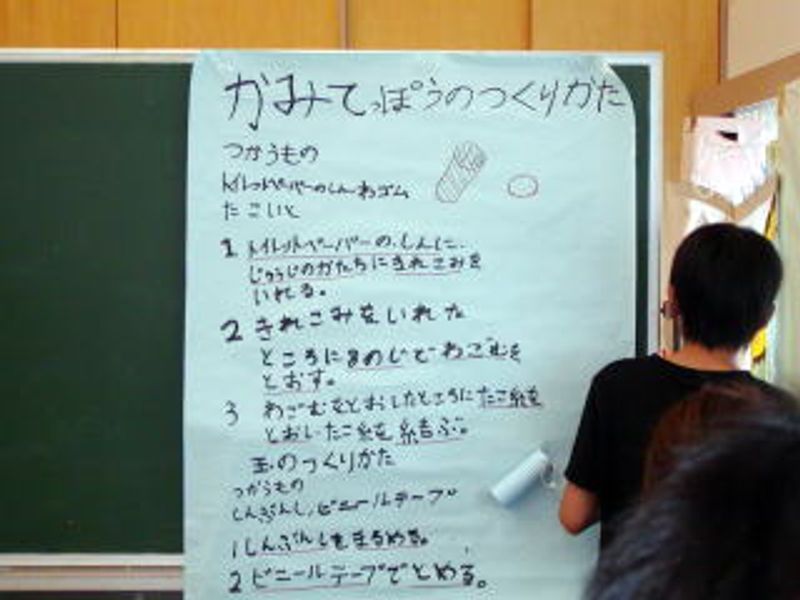 かみてっぽうのつくりかた
つかうもの
トイレットペーパーのしん わゴム
たこいと
1 トイレットペーパーのしんに、
じゅうじのかたちにきれこみを
いれる。
2 きれこみをいれた
ところにまめじでわごむを
とおす。
3 わごむをとおしたところにたこ糸を
とおしたこ糸を結ぶ。
玉のつくりかた
つかうもの
しんぶんし、ビニールテープ
1 しんぶんしをまるめる。
2 ビニールテープでとめる。